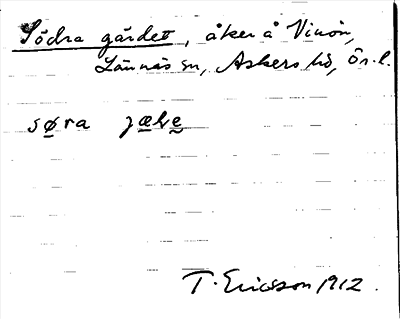 Södra gärdet, åker å Vinön,
Lännäs sn, Askers hd, Ör. l.
søra jæle
T. Ericsson 1912.